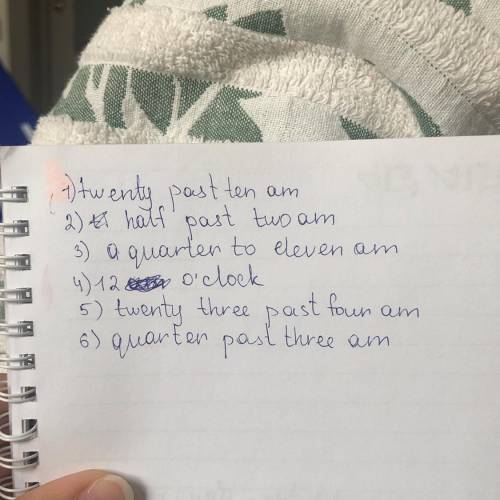 1) twenty past ten am
2) half past two am
3) a quarter to eleven am
4) 12 o'clock
5) twenty three past four am
6) quarter past three am